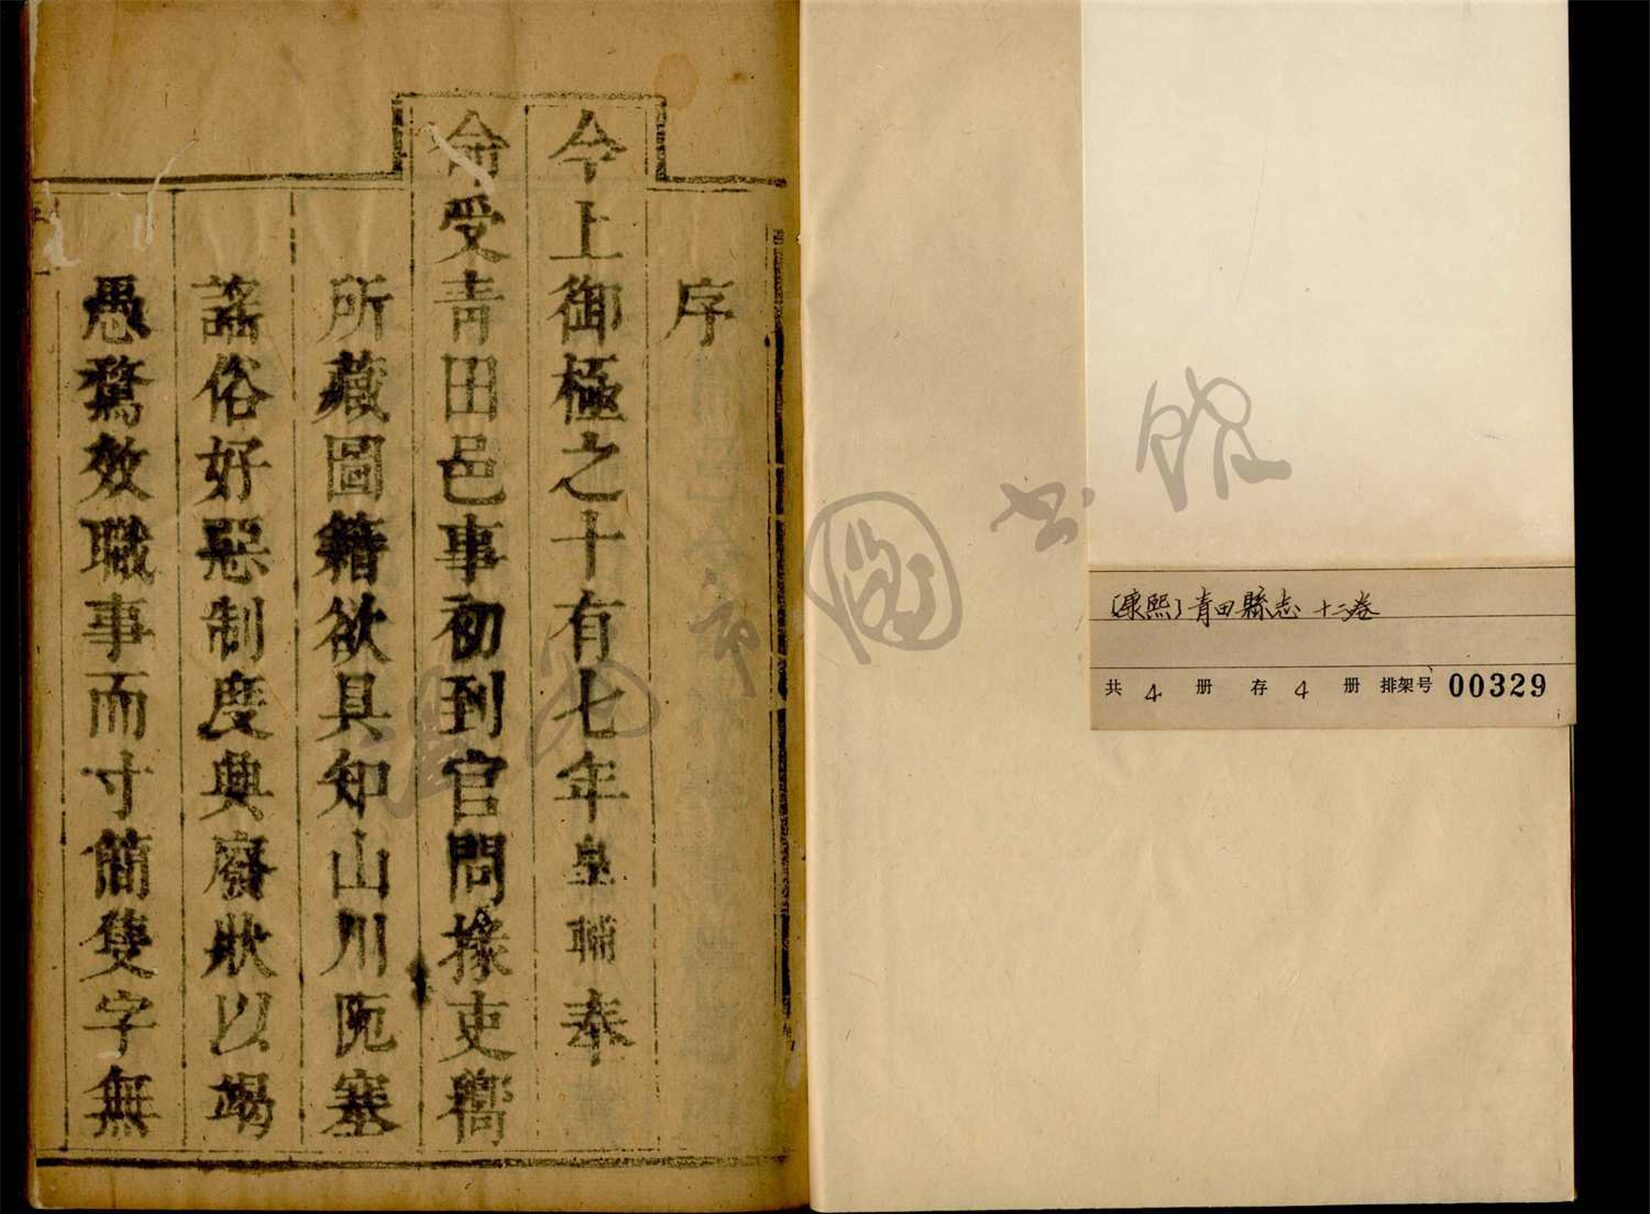 序
今上御極之十有七年皇輔奉
命受青田邑事初到官問掾吏舊
所藏圖籍欲具知山川阨塞
謠俗好惡制度興廢狀以竭
愚鶩效職事而寸簡隻字無
〔康熙〕青田縣志 十二卷
共 4 册 存 4 册 排架号 00329
市圖书館